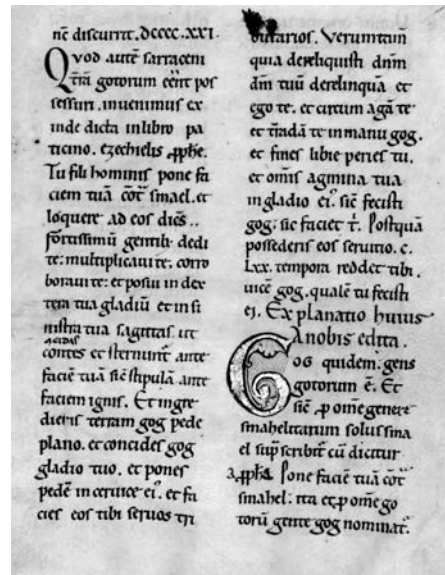 nc̄ discurrit. DCCCC.XXI.
Qvod autē sarraceni
q̄ t̄rā gotorum eēnt pos
sessuri. inuenimus ex
inde dicta in libro pa
ticino. ezechielis ꝓphē.
Tu fili hominis pone fa
ciem tuā cōt̄ smael. et
loquere ad eos dicēs..
fortissimū gentib; dedi
te: multiplicaui te: corro
boraui te: et posui in dex
tera tua gladiū et in si
nistra tua sagittas. ut
contes et sternunt ante
faciē tuā sic̄ stipula ante
faciem ignis. Et ingre
dieris terram gog pede
plano. et concides gog
gladio tuo. et pones
pedē in ceruice ei᷒. et fa
cies eos tibi seruos tri
butarios. Verumtam̄
quia dereliquisti dn̄m
dm̄ tuū derelinqua et
ego te. et circum agā te
et tradā te in manu gog.
et fines libie peries tu.
et om̄is agmina tua
in gladio ei᷒. sic̄ fecisti
gog: sic faciet t̄. Postquā
possederis eos seruitio. c.
Lxx. tempora reddet tibi.
uicē gog. qualē tu fecisti
ei. Explanatio huius
a nobis edita.
Gog quidem. gens
gotorum ē. Et
sic̄ ꝓ om̄e genere
smahelitarum solus sma
el sup̄ scribit̄ cū dicitur
a ꝓph̄a Pone faciē tuā cōt̄
smahel: ita et ꝓ om̄e go
torū gente gog nominat̄.